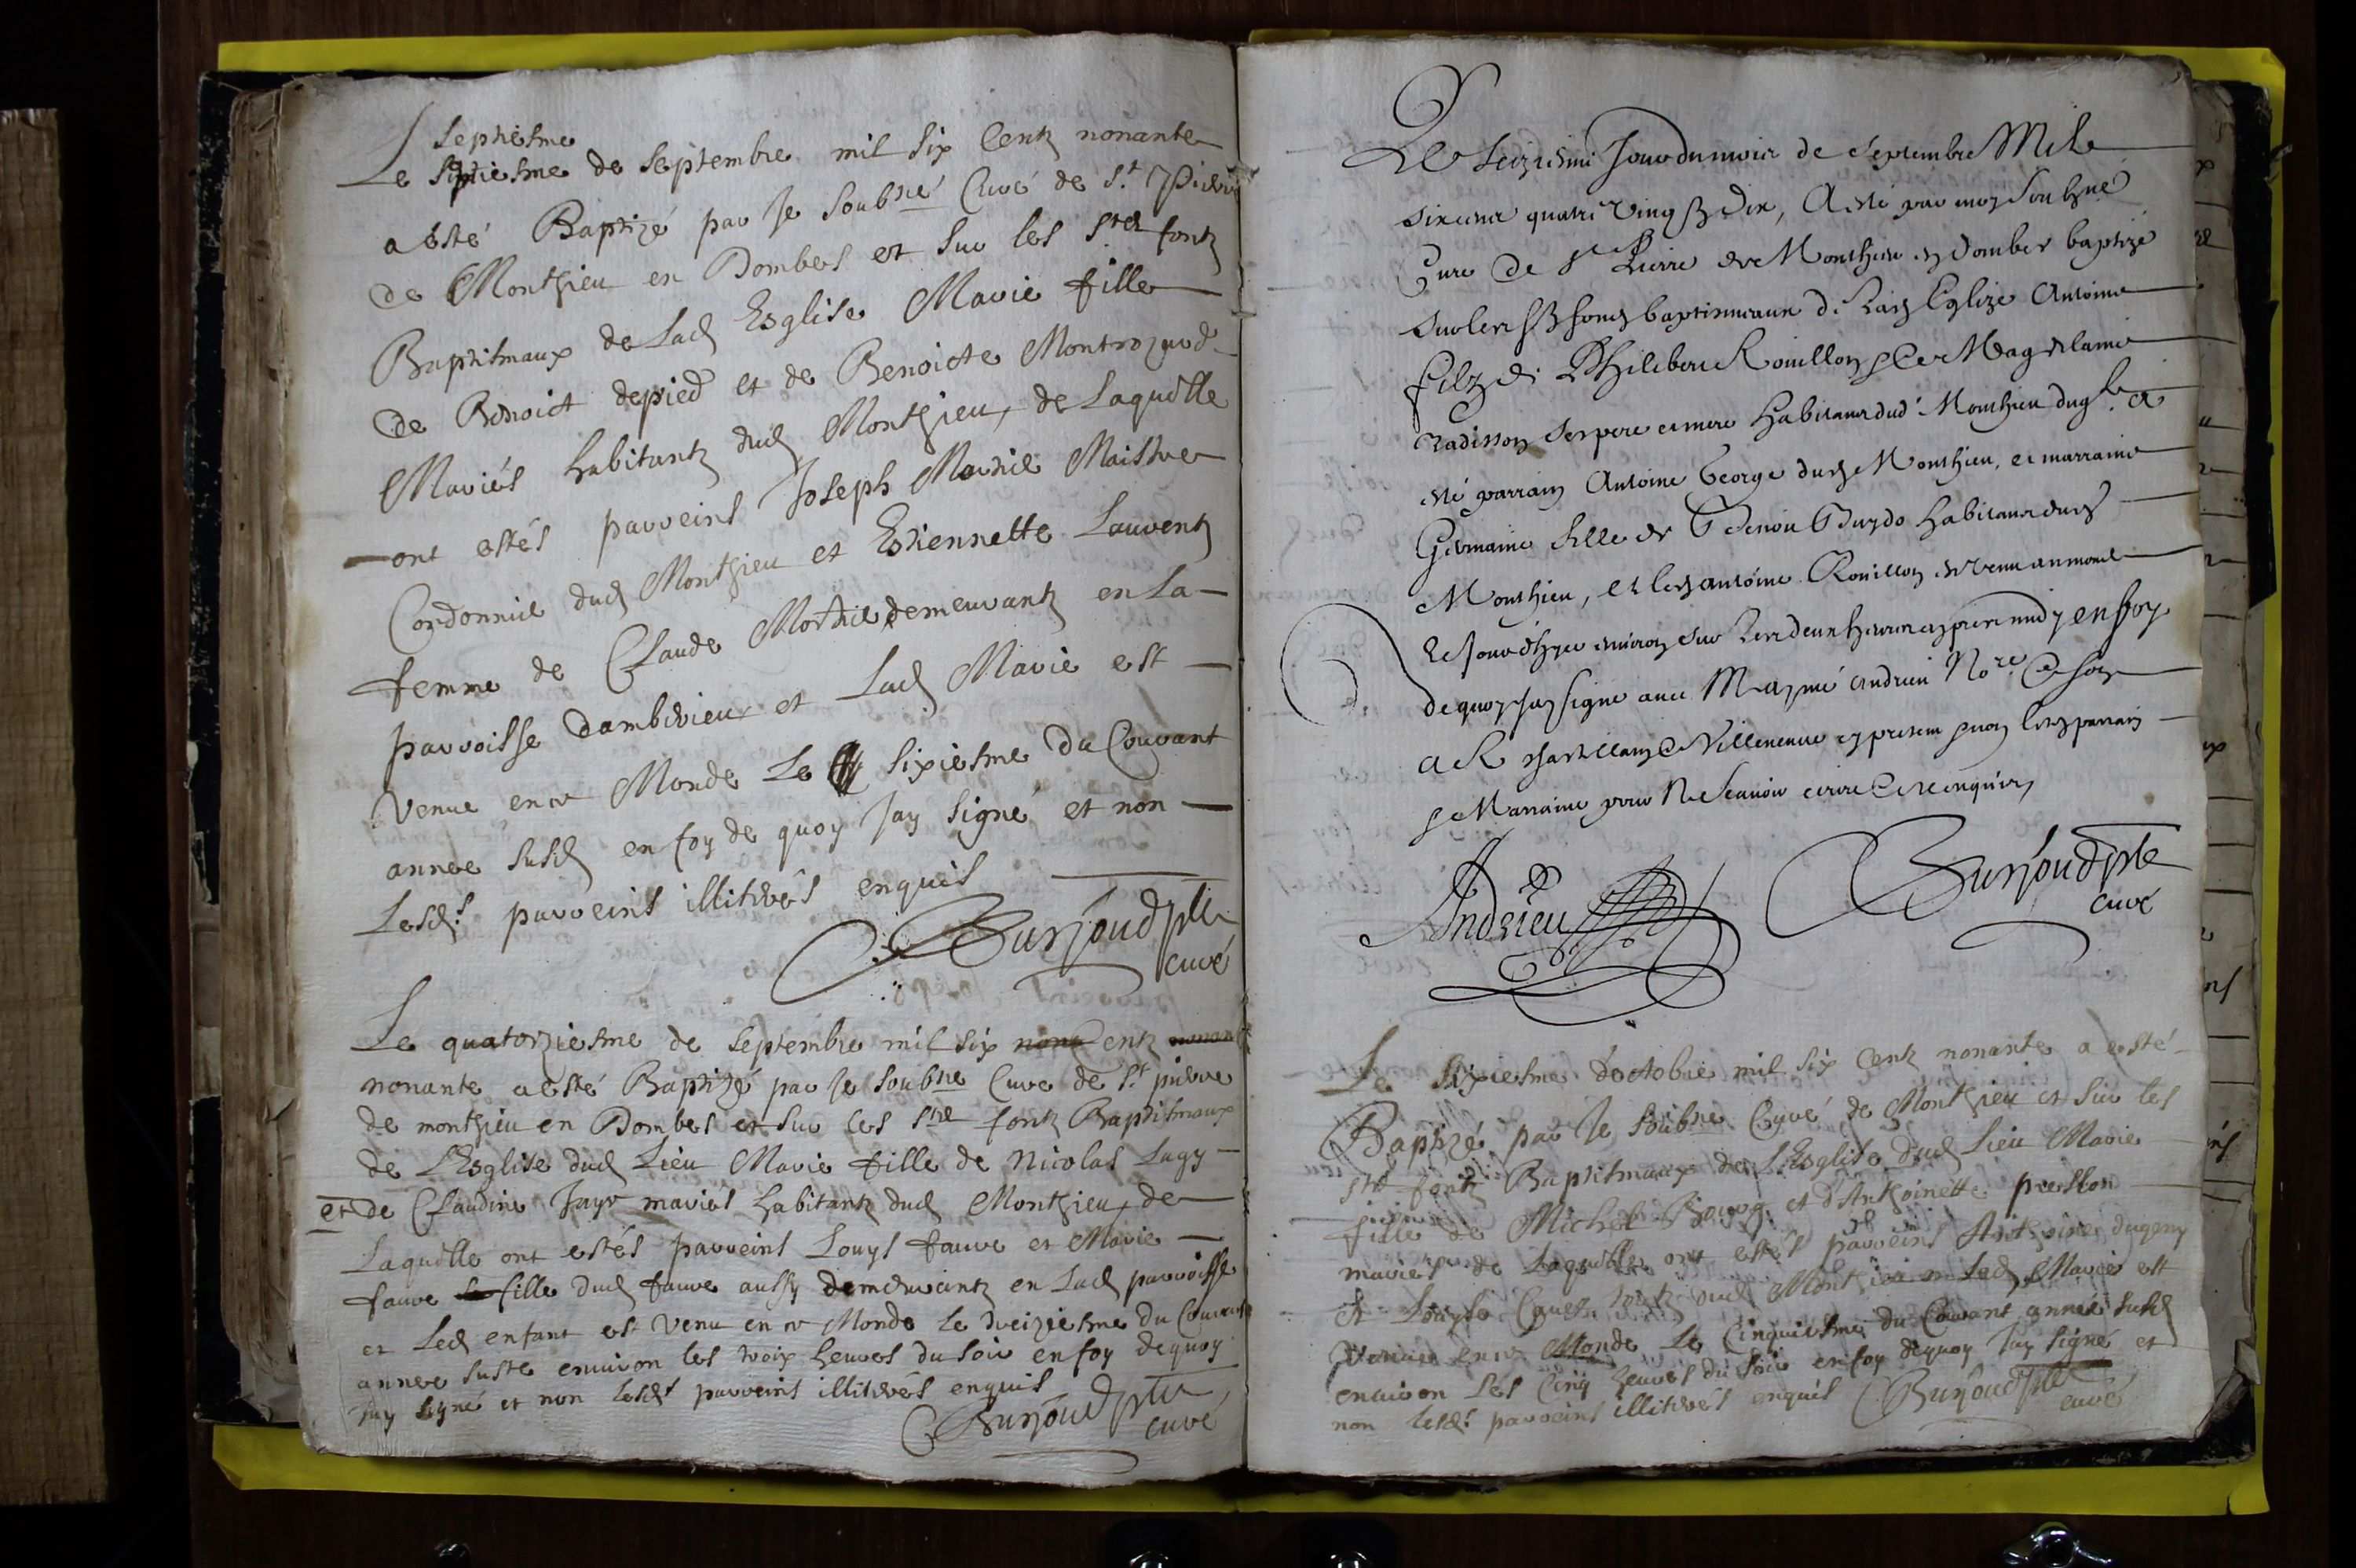 Septiesme
Le Septiesme de Septembre mil six Centz nonante
a esté Baptizé par Je soubné Curé de St. Pierre
de Monthieu en Dombes et sur les stes fontz
Baptismaux de Lad Esglise Marie fille
de Benoict depied et de Benoicte Montrozard
Mariés habitantz dud Monthieu, de Laquelle
ont estés parreins Joseph Maistre
Cordonnié dud Monthieu et Estiennette Laurentz
femme de Claude demeurantz en La
parroisse dambérieux et Lad Marie est
venue en ce Monde Le sixiesme Du Courant
annee susd en foy de quoy Jay signé et non
Lesds parreins illiterés enquis
Burjoud ptre
curé
Le quatorziesme de Septembre mil six nona entz nonant
nonante a esté Baptizé par Je soubné Curé de St pierre
de monthieu en Dombes et sur les stes fontz Baptismaux
de L'Esglise dud Lieu Marie fille de Nicolas Lagy
et de Claudine Jayr mariés habitantz dud Monthieu, de
Laquelle ont estés parreins Louys faure et Marie
faure fille dud faure aussy demeurantz en Lad parroisse
et Led enfant est venu en ce Monde le treiziesme du Courant
annee suste environ les troix heures du soir en foy dequoy
jay signé et non lesds parreins illiterés enquis
Burjoud ptre
curé
Le seiziesme Jour du mois de Septembre Mil
six cens quatre vingtz dix, A esté par moy soubzné
Curé de St Pierre de Monthieu en Dombes baptizé
sur les stz fondz baptismaux de Lad Eglize Antoine
filz de Philibert Rouillon et de Magdelaine
Radisson ses pere et mere habitans dud Monthieu duql a
esté parrain Antoine George dud Monthieu, et marraine
Germaine fille de Benoit habitans dud
Monthieu, et led antoine Rouillon est venu au monde
le Jourdhyer environ sur Les deux heures apres midy en foy
de quoy jay signé avec Me Aymé andrieu Nore
a Chastellain Villeneuve cy present non lesd parrain
et Marraine pour ne scavoir ecrire de ce enquis
Andrieu
Burjoud ptre
curé
Le sixiesme d'octobre mil six Centz nonante a esté
Baptizé par Je soubné Curé de Monthieu et sur les
stes fontz Baptismaux de L'Esglise dud Lieu Marie
fille de Michel Bourg et d'Anthoinette
mariés de Laquelle ont estés parreins Anthoine dugeny
et Louyse dud Monthieu Led Marie est
venue en ce Monde Le Cinquiesme du Courant année susd
environ les Cinq heures du soir en foy dequoy Jay signé et
non lesds parreins illiterés enquis Burjoud ptre
curé